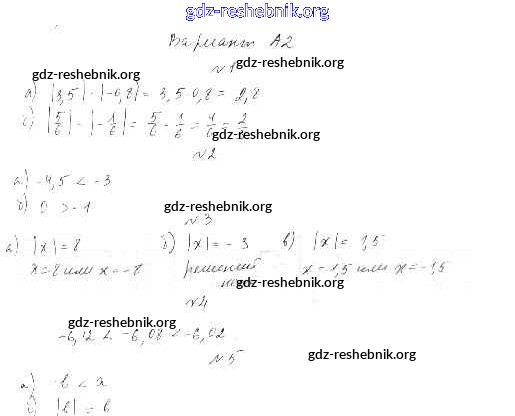 gdz-reshebnik.org
Вариант А2
№1 gdz-reshebnik.org
gdz-reshebnik.org
а) |3,5| · |-0,8| = 3,5 · 0,8 = 2,8
б) |5/6| - |-1/6| = 5/6 - 1/6 = 4/6 = 2/3
gdz-reshebnik.org
№2
а) -4,5 < -3
б) 0 > -1
gdz-reshebnik.org
№3
а) |x| = 8 б) |x| = -3 в) |x| = 1,5
x = 8 или x = -8 решений x = 1,5 или x = -1,5
gdz-reshebnik.org
№4
gdz-reshebnik.org
-6,12 < -6,08 < -6,02
№5
gdz-reshebnik.org
а) -b < a
б) |b| = b